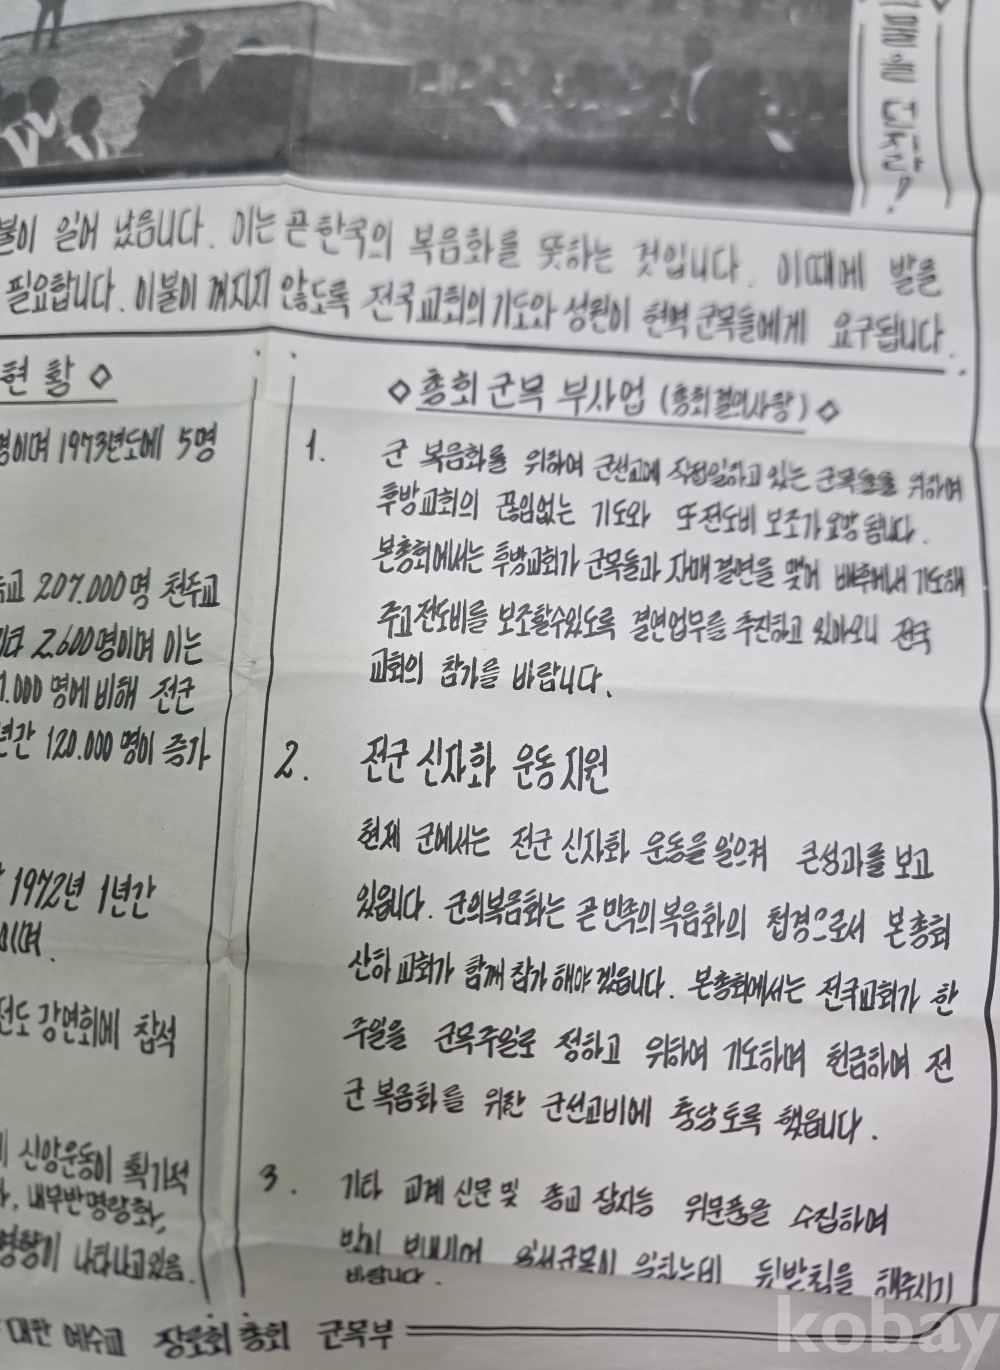 물을 던지라!
불이 일어 났읍니다. 이는 곧 한국의 복음화를 뜻하는 것입니다. 이때에 발을
필요합니다. 이불이 꺼지지 않도록 전국교회의 기도와 성원이 현역 군목들에게 요구됩니다.
현황 ◇
명이며 1973년도에 5명
207.000명 천주교
2.600명이며 이는
.000 명에 비해 전군
년간 120.000 명이 증가
1972년 1년간
이며.
전도 강연회에 참석
신앙운동이 획기적
내무반명랑화,
영향이 나타나고있음.
◇ 총회 군목 부사업 (총회결의사항) ◇
1. 군 복음화를 위하여 군선교에 직접일하고 있는 군목들을 위하여
후방교회의 끊임없는 기도와 또 전도비 보조가 요망 됩니다.
본총회에서는 후방교회가 군목들과 자매결연을 맺어 배후에서 기도해
주고 전도비를 보조할수있도록 결연업무를 추진하고 있아오니 전국
교회의 참가를 바랍니다.
2. 전군 신자화 운동 지원
현제 군에서는 전군 신자화 운동을 일으켜 큰성과를 보고
있읍니다. 군의복음화는 곧 민족의 복음화의 첩경으로서 본 총회
산하 교회가 함께 참가 해야 겠읍니다. 본총회에서는 전국교회가 한
주일을 군목주일로 정하고 위하여 기도하며 헌금하여 전
군 복음화를 위한 군선교비에 충당토록 했읍니다.
3. 기타 교계 신문 및 종교 잡지등 위문품을 수집하여
많이 보내시어 일선군목이 일하는데 뒷받침을 해주시기
바랍니다.
대한 예수교 장로회 총회 군목부
kobay